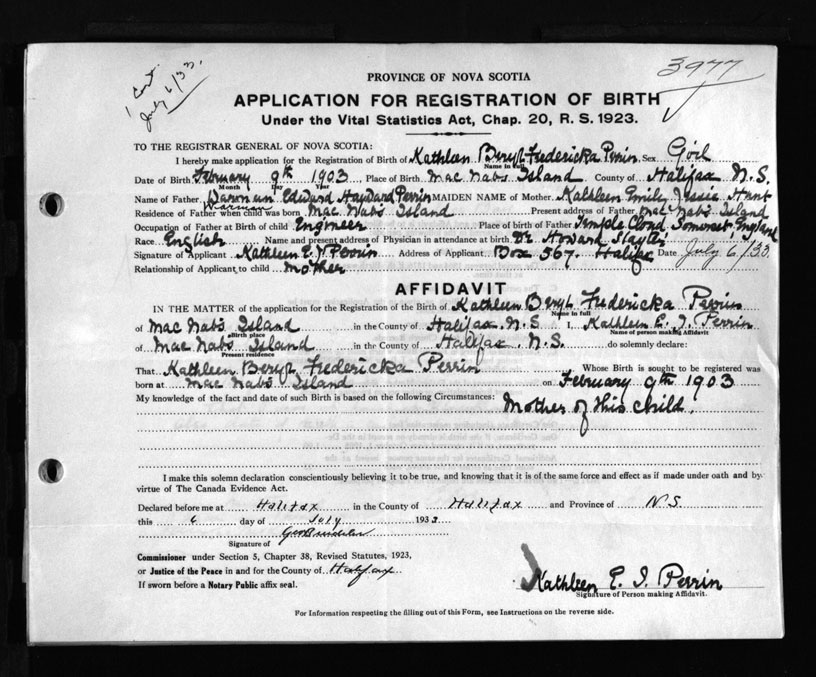 1 Cert.
July 6/33.
3977
PROVINCE OF NOVA SCOTIA
APPLICATION FOR REGISTRATION OF BIRTH
Under the Vital Statistics Act, Chap. 20, R. S. 1923.
TO THE REGISTRAR GENERAL OF NOVA SCOTIA:
I hereby make application for the Registration of Birth of Kathleen Beryl Fredericka Perrin Sex Girl
Name in full
Date of Birth February 9th 1903 Place of Birth Mac Nabs Island County of Halifax N.S.
Month Day Year
Name of Father Edward Hayward Perrin MAIDEN NAME of Mother Kathleen Emily Jessie Hunt
Residence of Father when child was born Mac Nabs Island Present address of Father Mac Nabs Island
Occupation of Father at Birth of child Engineer Place of birth of Father Temple Cloud, Somerset England
Race English Name and present address of Physician in attendance at birth Dr. Howard Slayter
Signature of Applicant Kathleen E. J. Perrin Address of Applicant Box 567. Halifax Date July 6/33.
Relationship of Applicant to child Mother
AFFIDAVIT
IN THE MATTER of the application for the Registration of the Birth of Kathleen Beryl Fredericka Perrin
Name in full
of Mac Nabs Island in the County of Halifax N.S. I, Kathleen E. J. Perrin
Birth place Name of person making Affidavit
of Mac Nabs Island in the County of Halifax N.S. do solemnly declare:
Present residence
That Kathleen Beryl Fredericka Perrin Whose Birth is sought to be registered was
born at Mac Nabs Island on February 9th 1903
My knowledge of the fact and date of such Birth is based on the following Circumstances: Mother of this child.
I make this solemn declaration conscientiously believing it to be true, and knowing that it is of the same force and effect as if made under oath and by
virtue of The Canada Evidence Act.
Declared before me at Halifax in the County of Halifax and Province of N.S.
this 6 day of July 1933
Signature of
Commissioner under Section 5, Chapter 38, Revised Statutes, 1923,
or Justice of the Peace in and for the County of Halifax
If sworn before a Notary Public affix seal.
Kathleen E. J. Perrin
Signature of Person making Affidavit.
For Information respecting the filling out of this Form, see Instructions on the reverse side.